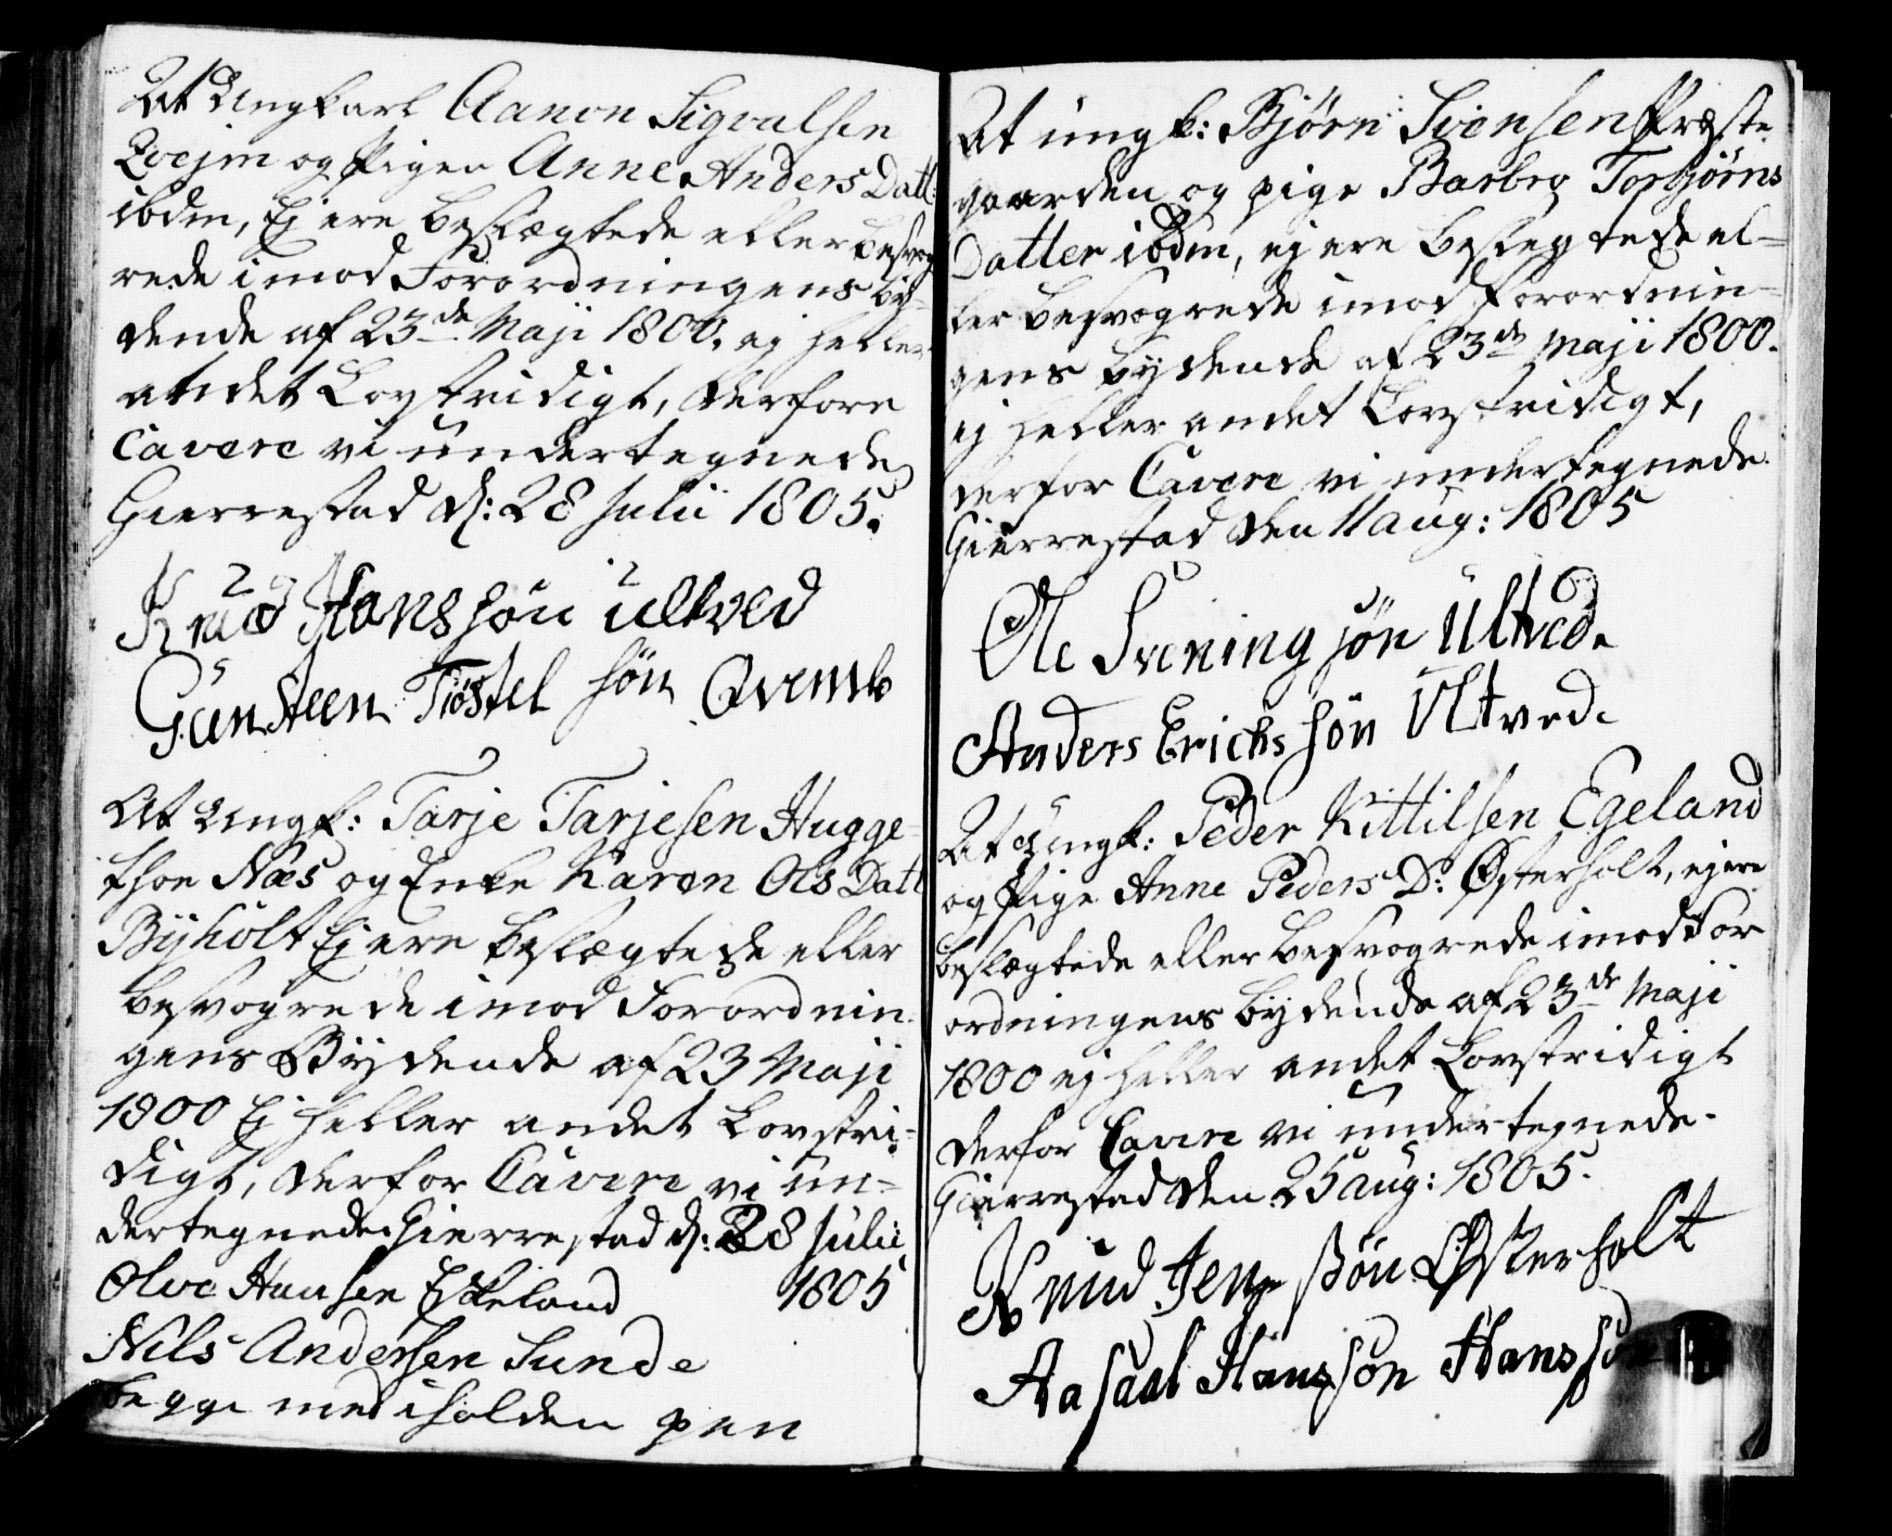 At Ungkarl Aanon Sigvalsen
Qvejm og Pigen Anne Anders Datt:
ibdm, Ej ere beslægtede eller besvog
rede imod Forordningens by-
dende af 23de Maji 1800. ej heller
andet Lovstridigt, derfore
Cavere vi undertegnede
Gierrestad d: 28 Julii 1805.
Knud Hanssøn Ultved
Gunsteen Tiøstel søn Qvemb
At Ungk: Tarje Tarjesen Hugge-
Næs og Enke Karen Ols Datt
Byholt Ej ere beslægtede eller
besvogrede imod Forordnin-
gens Bydende af 23 Maji
1800 Ej heller andet Lovstri-
digt, derfor Cavere vi un-
dertegnede. Gierrestad d: 28 Julii
1805
Olve Hansen Eskeland
Nils Andersen Sunde
begge med iholden pen
At ungk: Bjørn Svensen Præste
gaarden og pige Barbro Torbjørns
Datter ibdm, ej ere beslegtede el-
ler besvogrede imod Forordnin-
gens bydende af 23de Maji 1800.
ej heller andet Lovstridigt,
derfor Cavere vi undertegnede.
Gierrestad den 11 aug: 1805
Ole Svening søn Ultved.
Anders Erichs søn Ultved.
At Ungk: Peder Kittilsen Egeland
og Pige Anne Peders D: Østerholt, ej ere
beslægtede eller besvogrede imod For
ordningens bydende af 23de Maji
1800 ej heller andet Lovstridigt
derfor Cavere vi undertegnede.
Gierrestad den 25 aug: 1805.
Knud Jens søn Østerholt
Aasaul Hanssøn Hanssøn